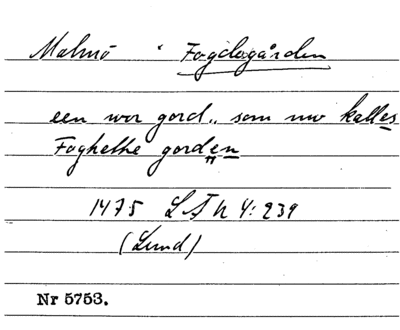 Malmö Fogdegården
een wor gord,, som nw kalles
Foghethe gorden
1475 LÄU 4:239
(Lund)
Nr 5753.